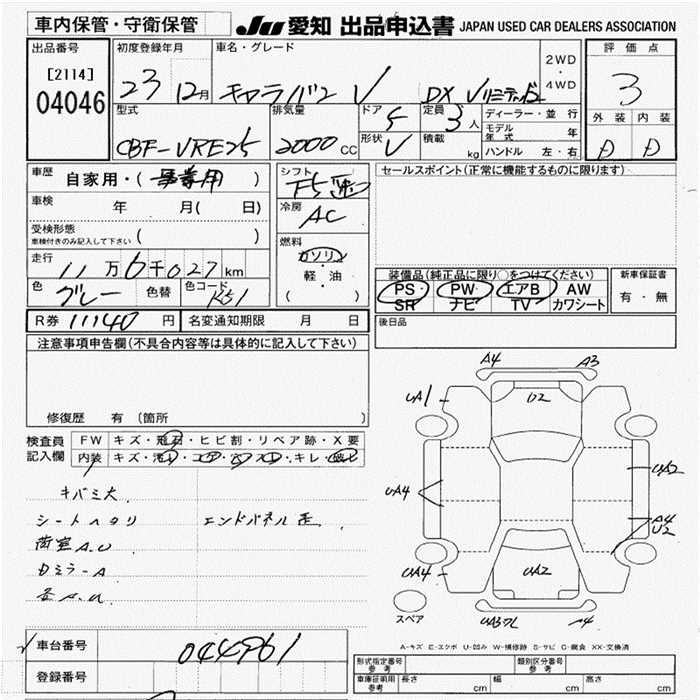 車内保管・守衛保管
JU 愛知 出品申込書 JAPAN USED CAR DEALERS ASSOCIATION
出品番号 [2114] 04046
初度登録年月 23 12月
車名・グレード キャラバン V DX Vリミテッド
2WD・4WD
評価点 3
外装 D 内装 D
型式 CBF-VRE25
排気量 2000 CC
ドア 5
形状 V
定員 3人
積載 kg
ディーラー・並行
モデル年式 年
ハンドル 左・右
車歴 自家用・(事業用)
車検 年 月( 日)
受検形態 車検付きのみ記入して下さい ( )
走行 11万6千027km
色 グレー 色替 色コード K51
シフト F5速
冷房 AC
燃料 ガソリン・軽・油 ( )
セールスポイント(正常に機能するものに限ります)
装備品(純正品に限り○をつけてください)
PS PW エアB AW
SR ナビ TV カワシート
新車保証書 有・無
R券 11140円 名変通知期限 月 日
後日品
注意事項申告欄(不具合内容等は具体的に記入して下さい)
修復歴 有 (箇所 )
検査員記入欄
FW キズ・飛石・ヒビ割・リペア跡・X要
内装 キズ・汚レ・コゲ・アス・キレ・破レ
キバミ大
シートヘタリ エンドパネル歪
荷室A.U
Dミラ-A
A.U
A4 A3
UA1 U2
UA2
UA4
A4 U2
UA4 UA2
UAB A4
スペア
A-キズ E-エクボ U-凹み W-補修跡 S-サビ C-腐食 XX-交換済
車台番号 044961
登録番号
型式指定番号 参考 類別区分番号 参考
車庫証明用 参考 長さ cm 幅 cm 高さ cm